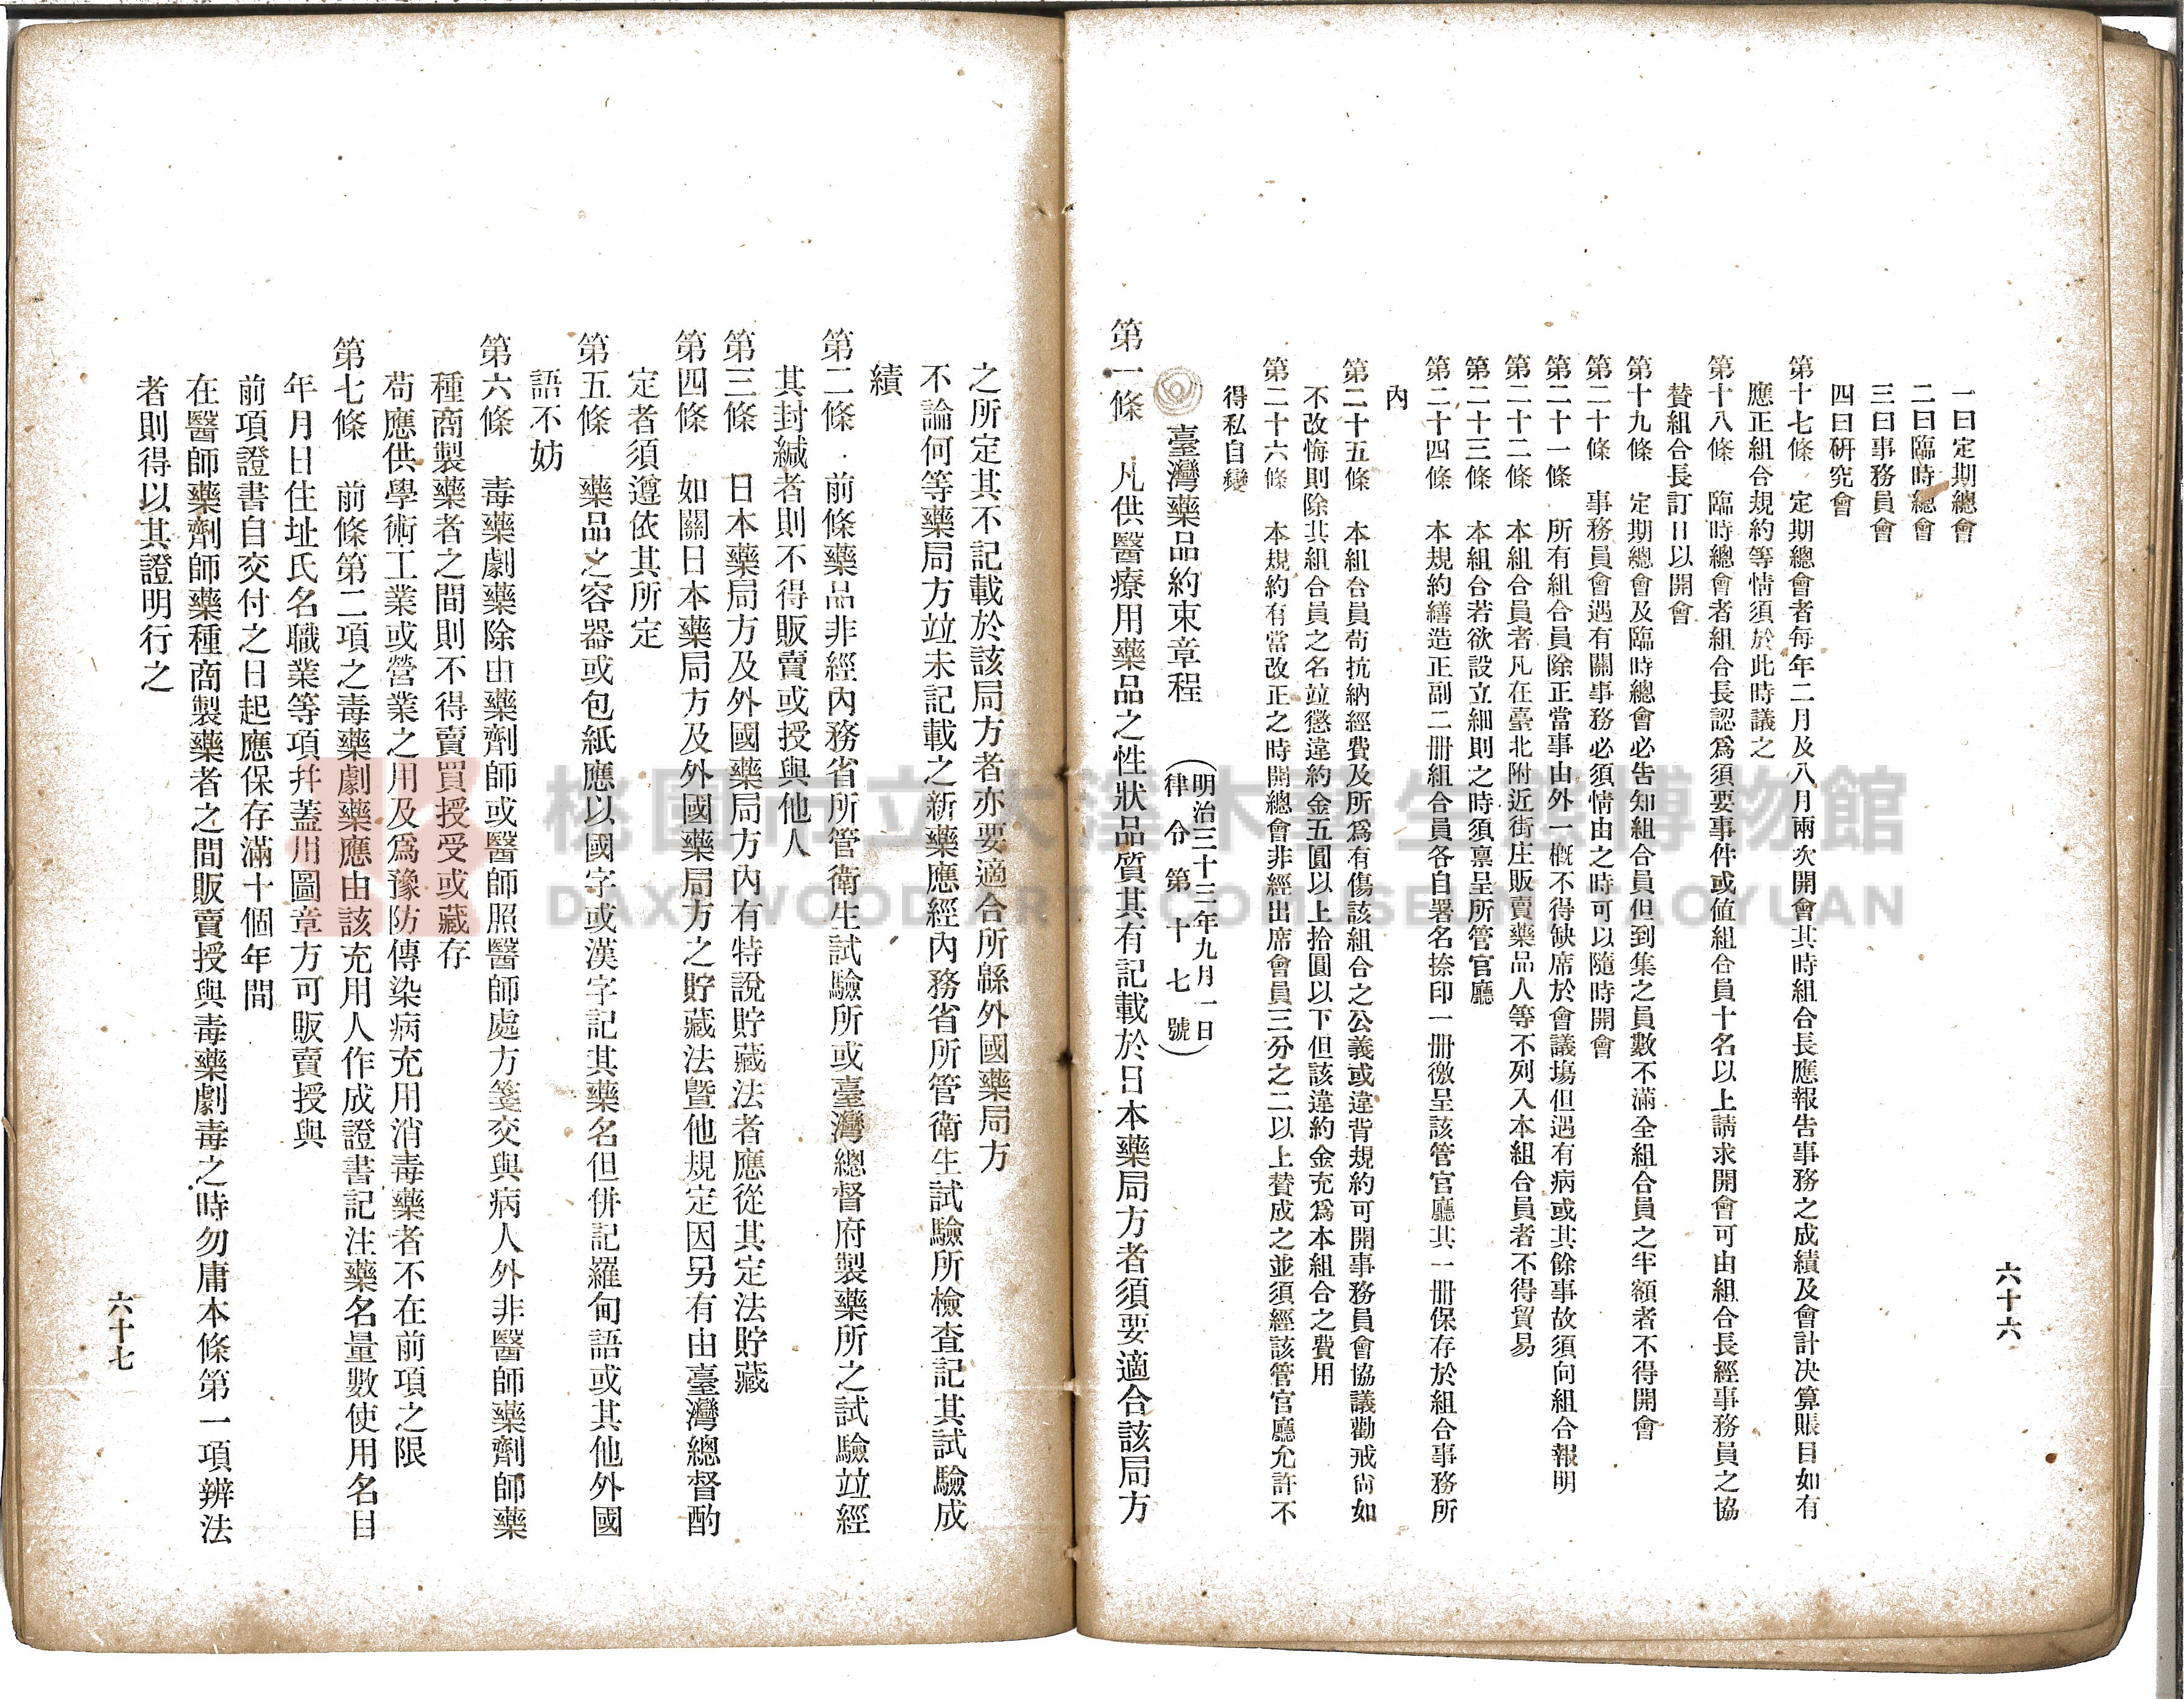 六十六
一曰定期總會
二曰臨時總會
三曰事務員會
四曰硏究會
第十七條　定期總會者每年二月及八月兩次開會其時組合長應報告事務之成績及會計決算賬目如有
應正組合規約等情須於此時議之
第十八條　臨時總會者組合長認爲須要事件或値組合員十名以上請求開會可由組合長經事務員之協
贊組合長訂日以開會
第十九條　定期總會及臨時總會必吿知組合員但到集之員數不滿全組合員之半額者不得開會
第二十條　事務員會遇有關事務必須情由之時可以隨時開會
第二十一條　所有組合員除正當事由外一槪不得缺席於會議塲但遇有病或其餘事故須向組合報明
第二十二條　本組合員者凡在臺北附近街庄販賣藥品人等不列入本組合員者不得貿易
第二十三條　本組合若欲設立細則之時須禀呈所管官廳
第二十四條　本規約繕造正副二册組合員各自署名捺印一册徼呈該管官廳其一册保存於組合事務所
內
第二十五條　本組合員苟抗納經費及所爲有傷該組合之公義或違背規約可開事務員會協議勸戒尙如
不改悔則除其組合員之名竝懲違約金五圓以上拾圓以下但該違約金充爲本組合之費用
第二十六條　本規約有當改正之時開總會非經出席會員三分之二以上贊成之並須經該管官廳允許不
得私自變
臺灣藥品約束章程
（明治三十三年九月一日
律令第十七號）
第一條　凡供醫療用藥品之性狀品質其有記載於日本藥局方者須要適合該局方
之所定其不記載於該局方者亦要適合所繇外國藥局方
不論何等藥局方竝未記載之新藥應經內務省所管衛生試驗所檢査記其試驗成
績
第二條　前條藥品非經內務省所管衛生試驗所或臺灣總督府製藥所之試驗竝經
其封緘者則不得販賣或授與他人
第三條　日本藥局方及外國藥局方內有特說貯藏法者應從其定法貯藏
第四條　如關日本藥局方及外國藥局方之貯藏法曁他規定因另有由臺灣總督酌
定者須遵依其所定
第五條　藥品之容器或包紙應以國字或漢字記其藥名但併記羅甸語或其他外國
語不妨
第六條　毒藥劇藥除由藥劑師或醫師照醫師處方箋交與病人外非醫師藥劑師藥
種商製藥者之間則不得賣買授受或藏存
苟應供學術工業或營業之用及爲豫防傳染病充用消毒藥者不在前項之限
第七條　前條第二項之毒藥劇藥應由該充用人作成證書記注藥名量數使用名目
年月日住址氏名職業等項幷蓋用圖章方可販賣授與
前項證書自交付之日起應保存滿十個年間
在醫師藥劑師藥種商製藥者之間販賣授與毒藥劇毒之時勿庸本條第一項辨法
者則得以其證明行之
六十七
桃園市立大溪木藝生態博物館
DAXI WOOD ART ECOMUSEUM TAOYUAN